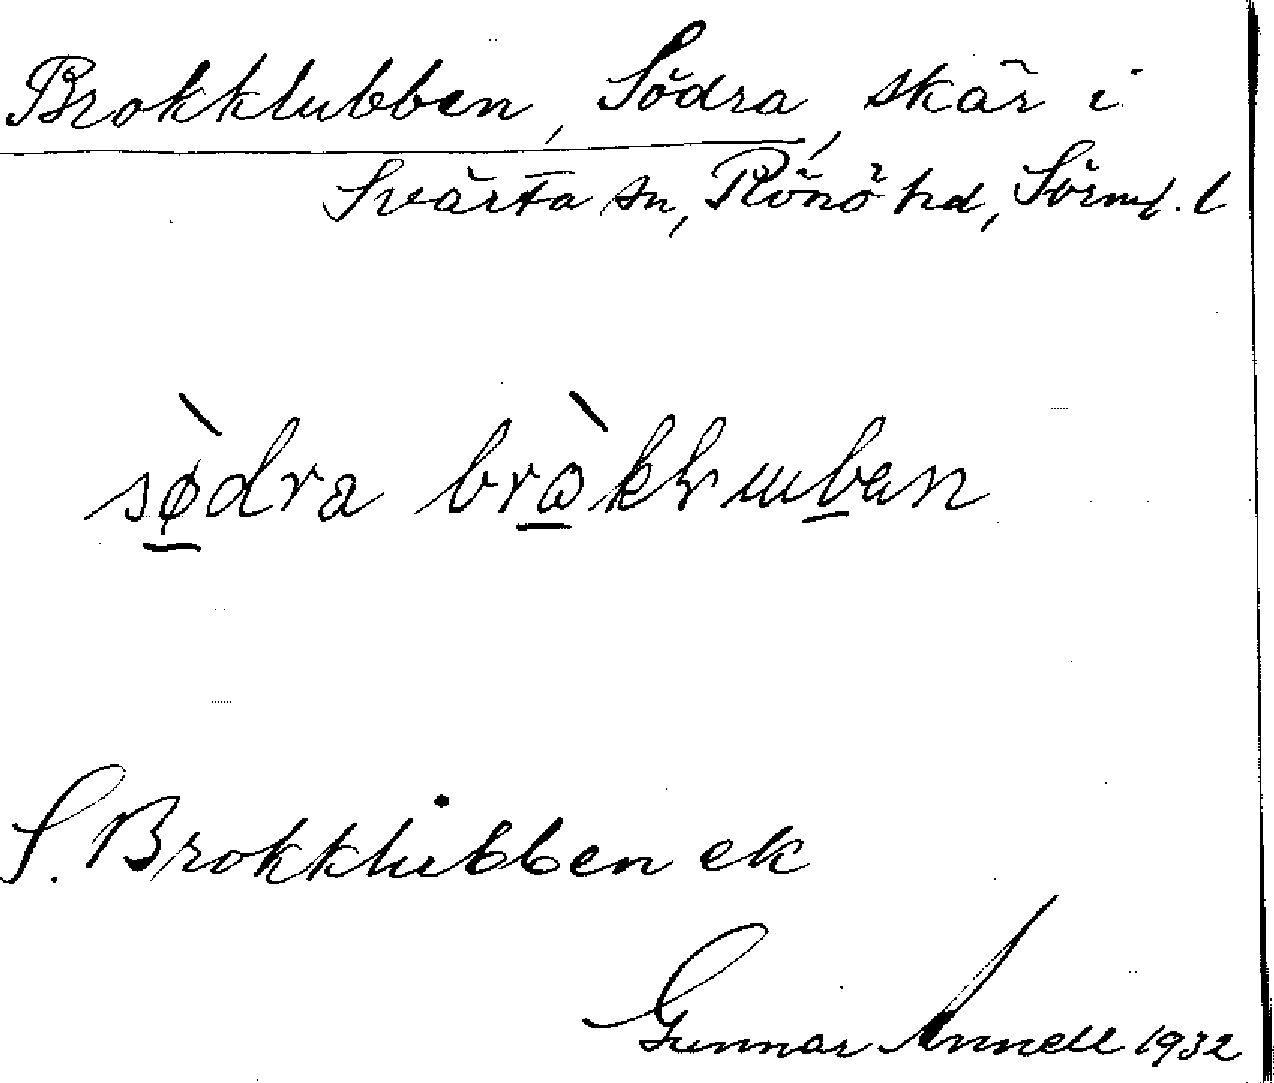 Brokklubben, Södra, skär i
Svärta sn, Rönö hd, Sörml. l
sø̀dra bràkluban
S. Brokklubben ek
Gunnar Annell 1932